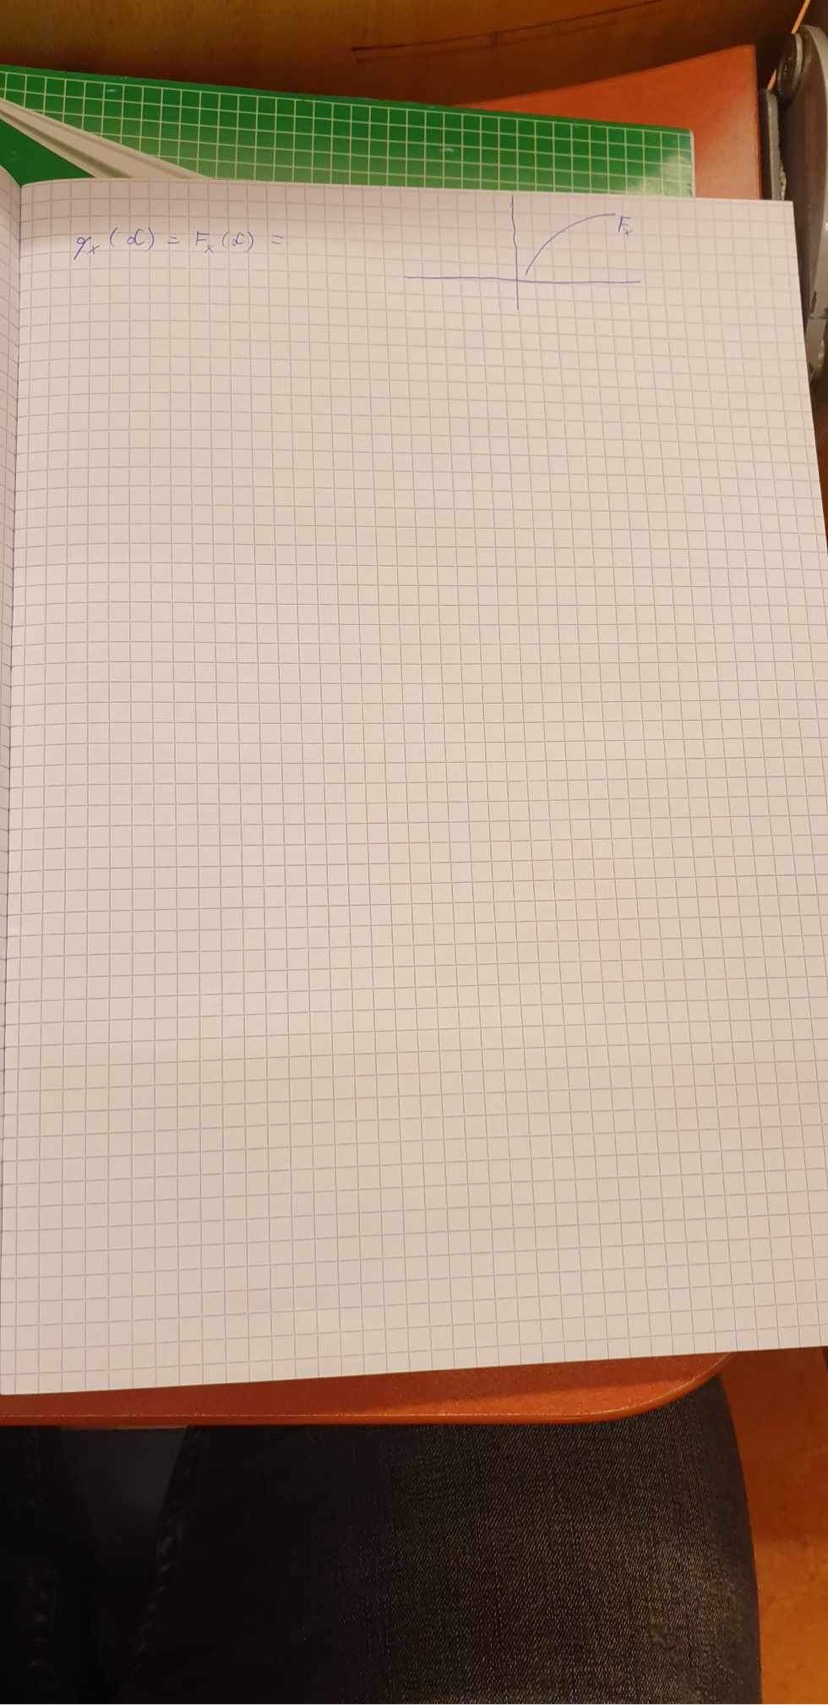 qₓ(α) = Fₓ(α) =
Fₓ